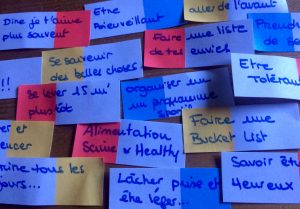 Dire je t'aime
plus souvent
Etre
Bienveillant
aller de l'avant
Prendre
de
Faire une liste
de tes envies
Se souvenir
des belles choses
!!!
Se lever 15 m'
plus tôt
organiser
un programme
sportif
Etre
Toléran
er et
encer
Alimentation
Saine & Healthy
Faire une
Bucket List
rire tous les
jours...
Lâcher prise et
être léger...
Savoir être
Heureux